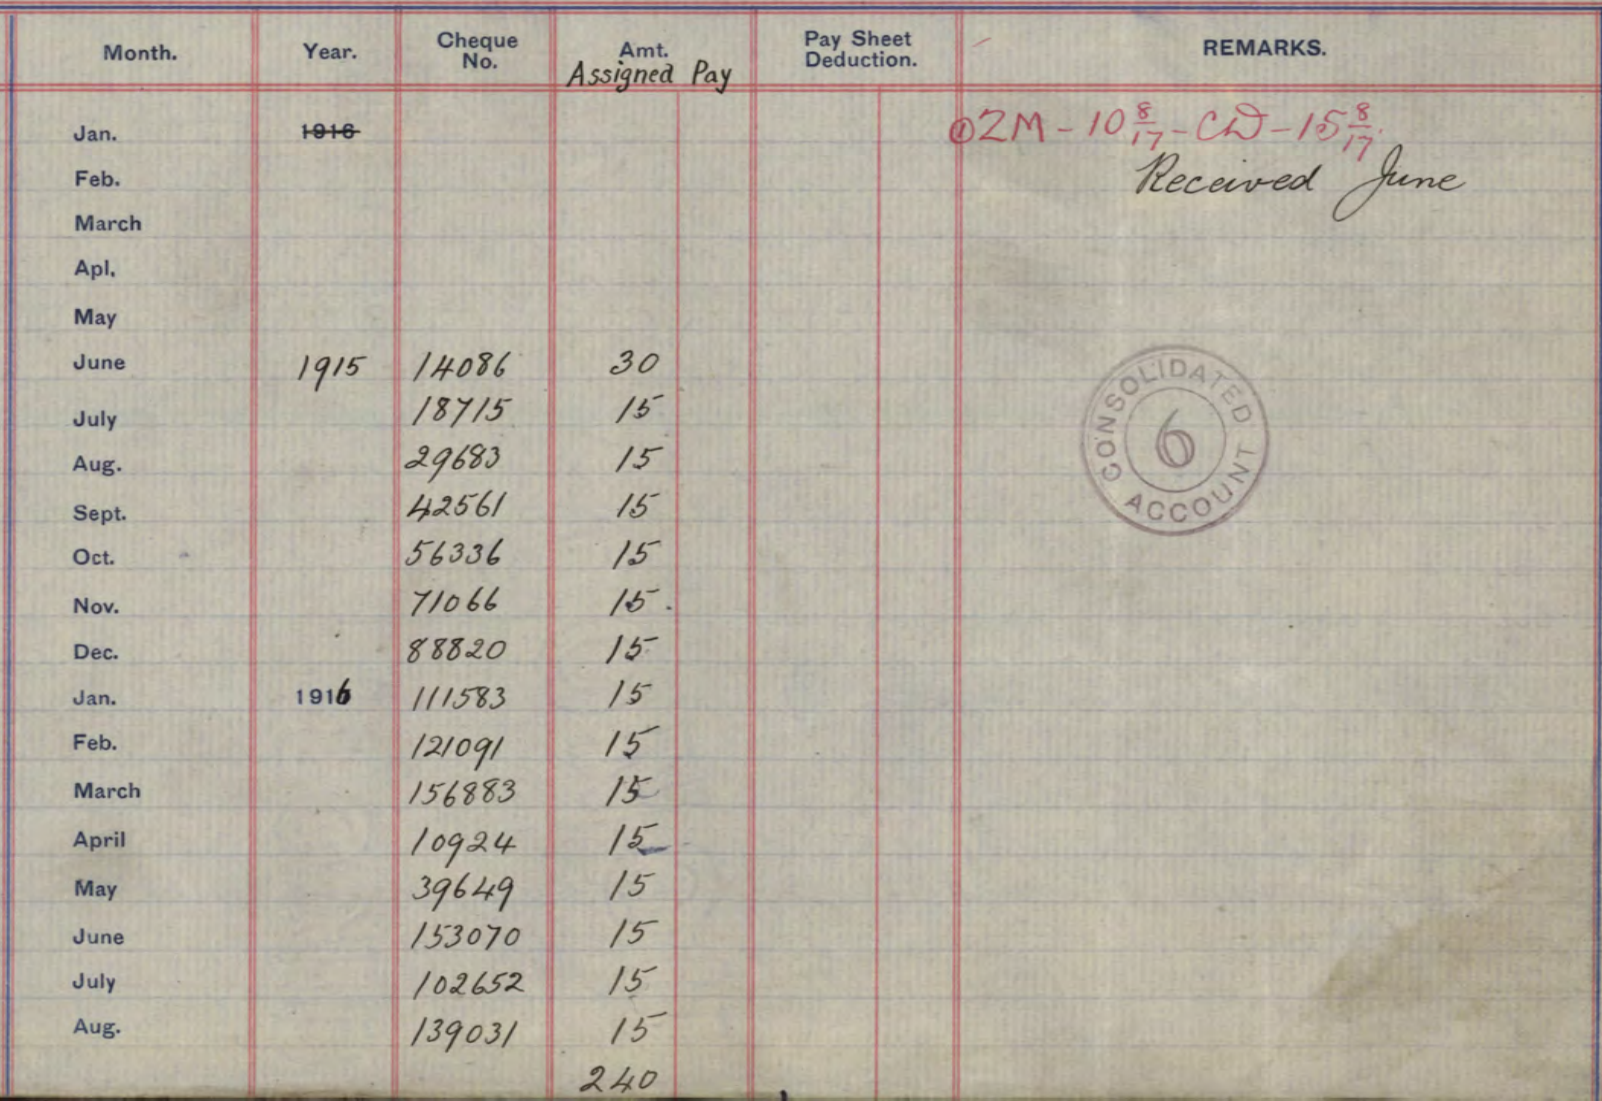 Month. Year. Cheque No. Amt. Assigned Pay Pay Sheet Deduction. REMARKS.
Jan. 1916 ①ZM - 10 8/17 - CW - 15 8/17.
Feb. Received June
March
Apl.
May
June 1915 14086 30
July 18715 15
Aug. 29683 15
Sept. 42561 15
Oct. 56336 15
Nov. 71066 15.
Dec. 88820 15
Jan. 1916 111583 15
Feb. 121091 15
March 156883 15
April 10924 15
May 39649 15
June 153070 15
July 102652 15
Aug. 139031 15
240
CONSOLIDATED ACCOUNT
6